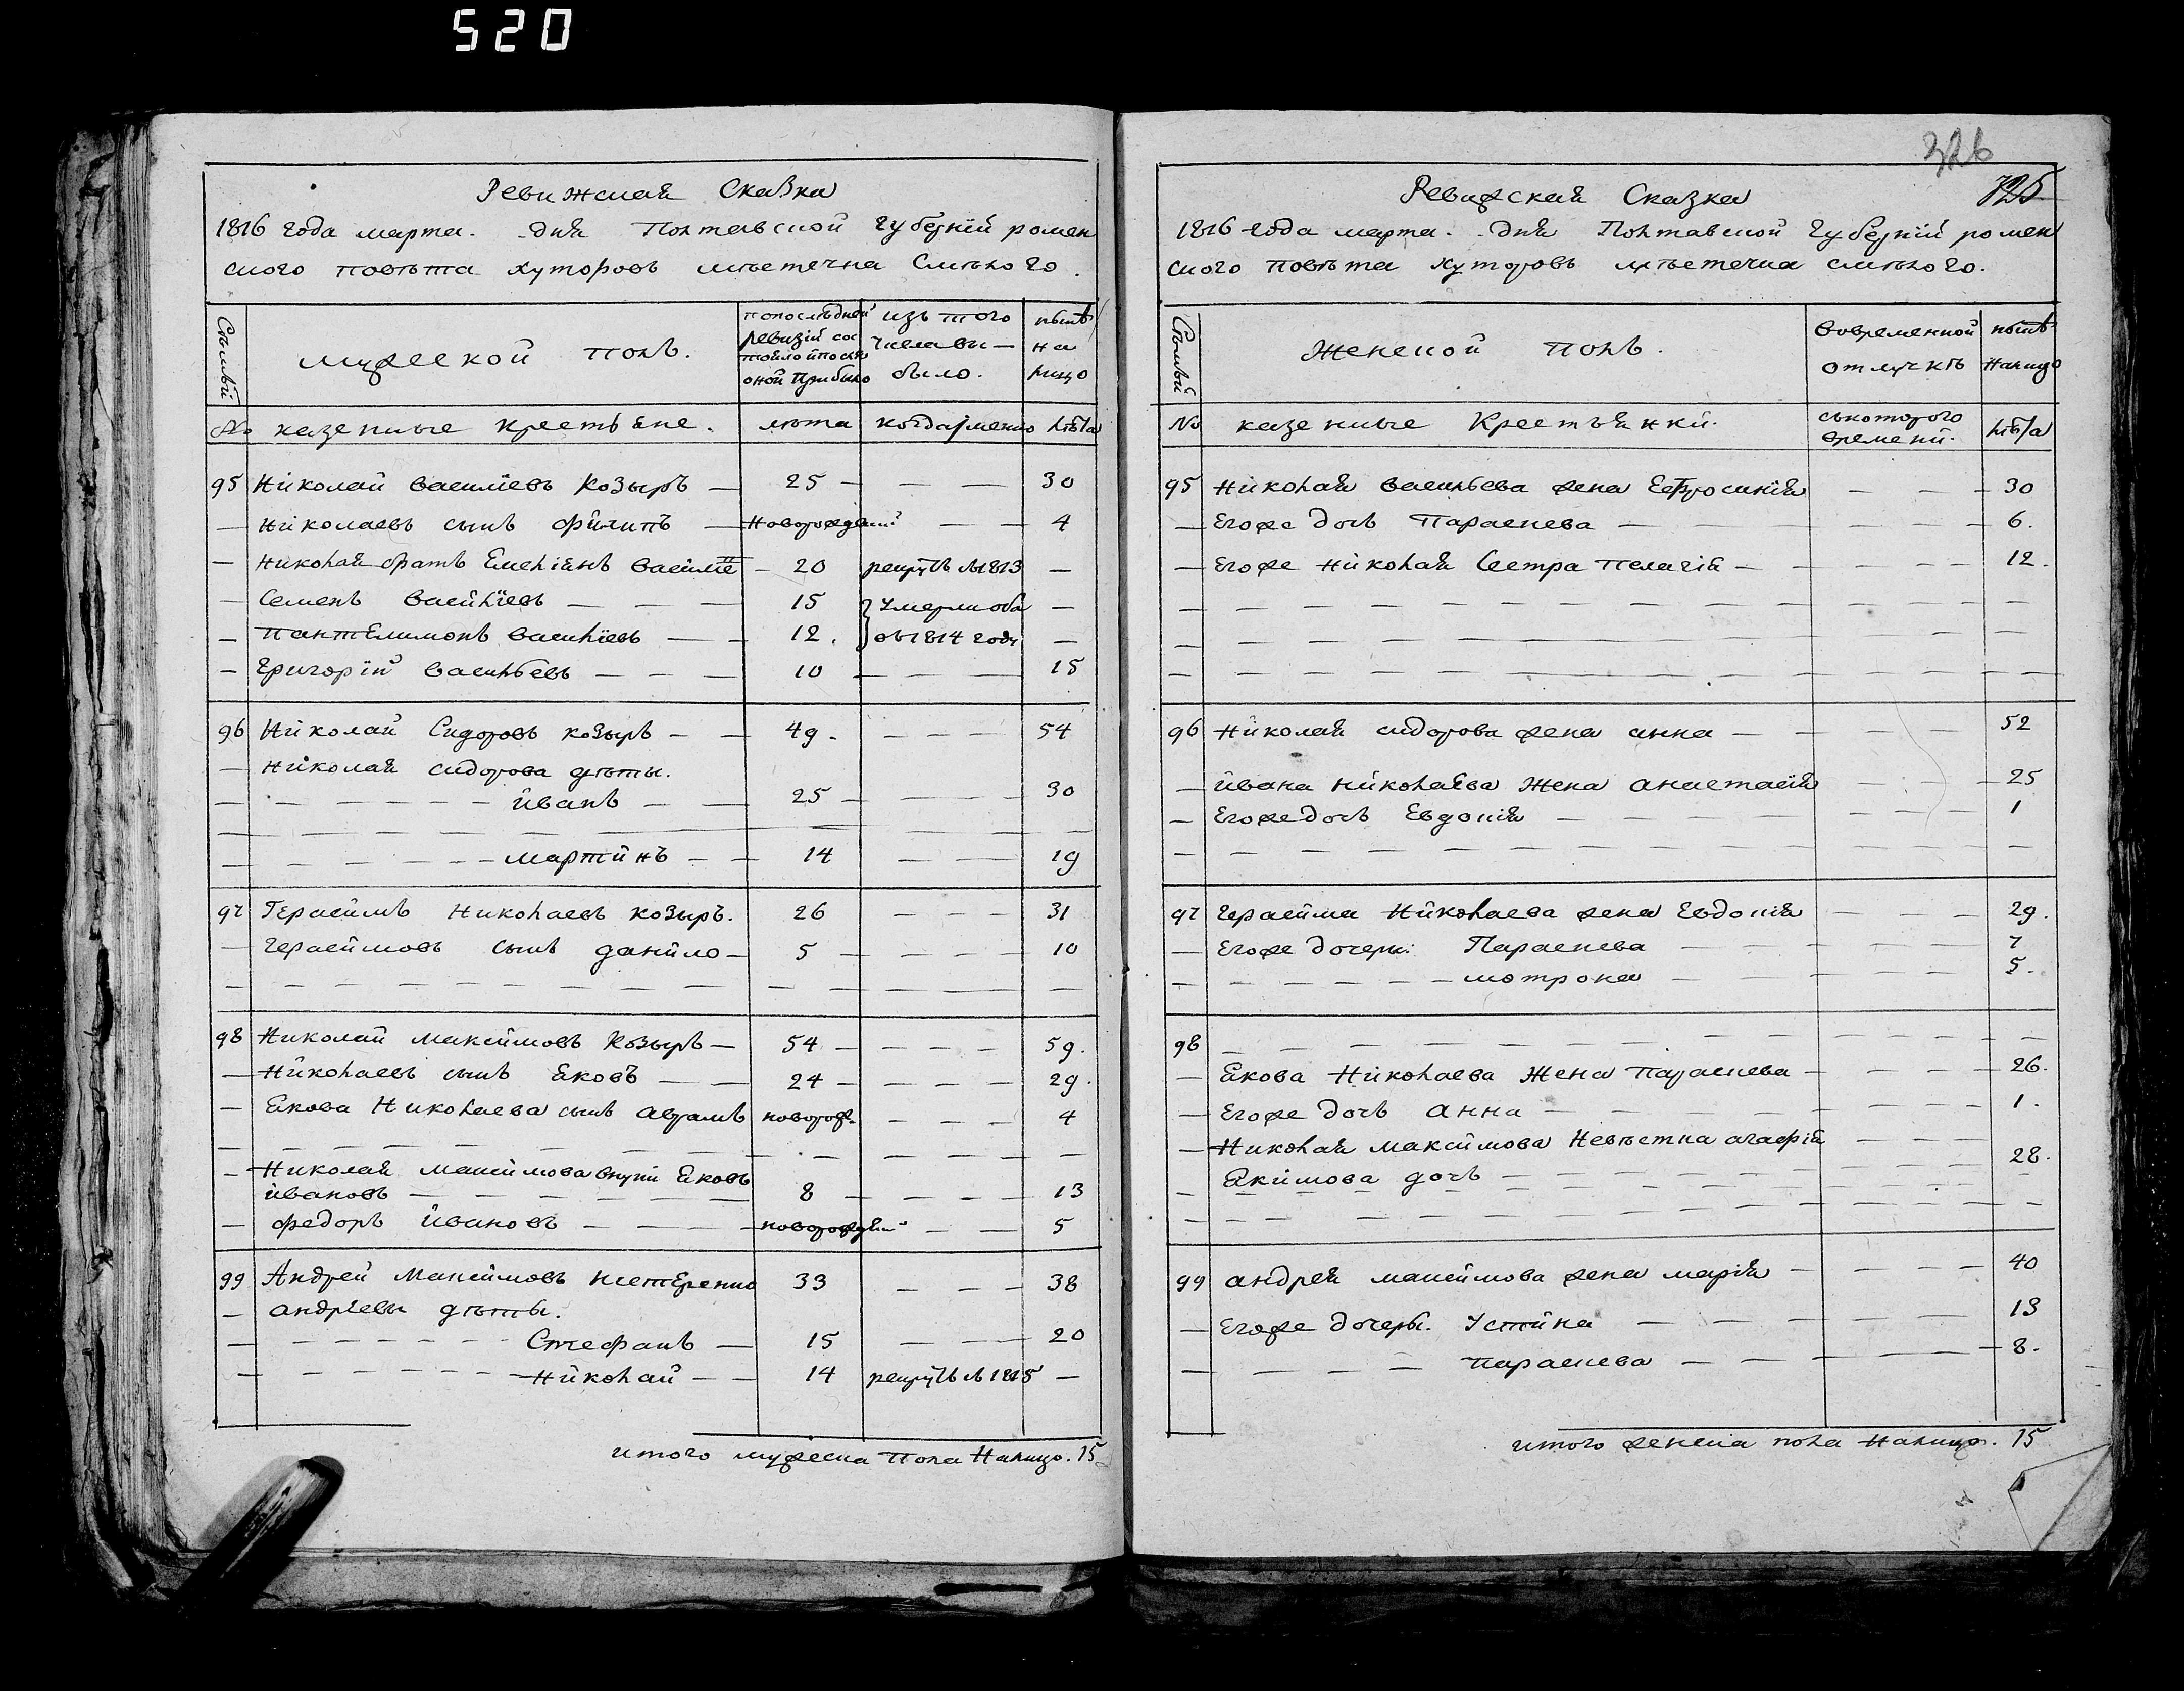 520
326
725
Ревижская Сказка
1816 года марта. дня Полтавской губернїй ромен
ского повѣта хуторовъ мѣстечка Смѣлого.
Семьи
мужеской полъ.
попослѣдней ревизїй сос тояло йпослѣ оной прибыло
изъ того числа вы- было.
нынѣ на лицо
№ казенные крестьяне. лѣта когда именно лѣта
95 Нйколай василїевъ Козыръ — 25 — — — 30
— нйколаевъ сынъ филипъ — новорожденный — — 4
— николая братъ Емелїянъ василїе — 20 рекрутъ в 1813 —
— Семенъ васйлїевъ — — — 15 умерли оба —
— пантелимонъ василїевъ — — 12. въ 1814 году —
— григорїй васильевъ — — — 10 — — — 15
96 Нйколай Сидоровъ козыръ — — 49 — — — — 54
— нйколая сидорова дѣты.
— — — — — йванъ — — 25 — — — — 30
— — — — — мартйнъ — — 14 — — — 19
97 Герасймъ николаевъ козыръ. 26 — — — 31
— герасймовъ сынъ данйло — 5 — — — — 10
98 Николай максймовъ Козыръ — 54 — — — — 59.
— Нйколаевъ сынъ яковъ — — 24 — — — — 29.
— якова Николаева сынъ аврамъ новорож. — — — 4
— Николая максймова внукй яковъ
йвановъ — — — — — 8 — — — — 13
— федоръ йвановъ — — — — новорожден — — 5
99 Андрей Максймовъ нестеренко 33 — — — 38
— андрѣевы дѣты.
— — — — — Стефанъ — 15 — — — 20
— — — — — Нйколай — — 14 рекрутъ в 1815 —
итого мужеска пола налицо. 15
Ревижская Сказка
1816 года марта. дня Полтавской губернїй ромен
ского повѣта хуторовъ мѣстечка смѣлого.
Семьи
Женской полъ.
вовременной отлучкѣ
нынѣ налицо
№ казенные крестьянкй. съкоторого временй. лѣта
95 нйколая васильева жена Ефросинїя — — — 30
— Егоже дочь Параскева — — — — 6.
— Егоже нйколая сестра пелагїя — — — — 12.
96 нйколая сидорова жена анна — — — — 52
— йвана нйколаева жена анастасїя — — — 25
— Егоже дочь Евдокїя — — — — 1
97 герасйма Нйколаева жена Евдокїя — — — 29.
— Егоже дочеры: Параскева — — — — 7
— — — — — мотрона — — — — 5.
98 — — — — — — — —
— якова Нйколаева жена параскева — — — — 26.
— Егоже дочь анна — — — — 1.
— Николая максймова невѣстка агафїя — —
— якимова дочь — — — — 28.
99 андрея максймова жена марїя — — — — 40
— Егоже дочеры. Устйна — — — — 13
— — — — — параскева — — — — 8.
итого женска пола налицо. 15